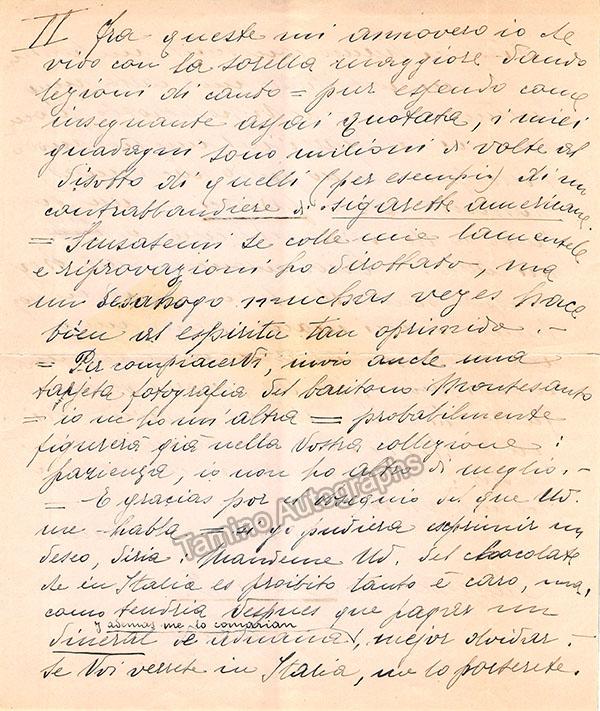 II Fra queste mi annovero io che
vivo con la sorella maggiore dando
lezioni di canto = pur essendo come
insegnante assai quotata, i miei
guadagni sono milioni di volte al
disotto di quelli (per esempio) di un
contrabbandiere di sigarette americane
= Scusatemi se colle mie lamentele
e riprovazioni ho dirottato, ma
un desahogo muchas vezes hace
bien al espiritu tan oprimido. -
= Per compiacervi, invio anche una
tarjeta fotografia del baritono Montesanto
= io ne ho un'altra = probabilmente
figurerà già nella Vostra collezione:
pazienza, io non ho altro di meglio. -
= E gracias por el obsequio de que Ud.
me habla = si yo pudiera exprimir un
deseo, diria: Mandeme Ud. del chocolate
che in Italia es proibito tanto è caro, ma,
como tendria despues que pagar un
y ademas me lo comarian
dineral de aduana, mejor olvidar. -
Se Voi verrete in Italia, me lo porterete.
Tamino Autographs